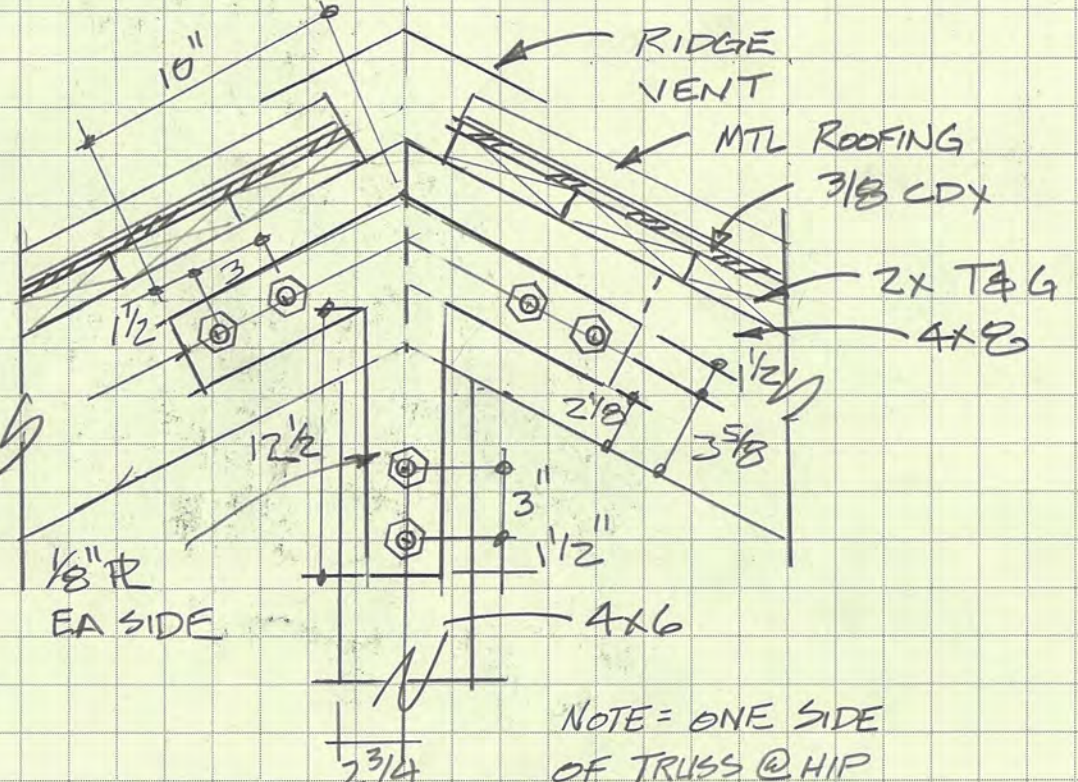 10"
RIDGE
VENT
MTL ROOFING
3/8 CDX
2X T&G
4X8
3
1 1/2
1 1/2
2 1/8
3 5/8
12 1/2
3"
1 1/2"
1/8" PL
EA SIDE
4X6
NOTE = ONE SIDE
OF TRUSS @ HIP
2 3/4